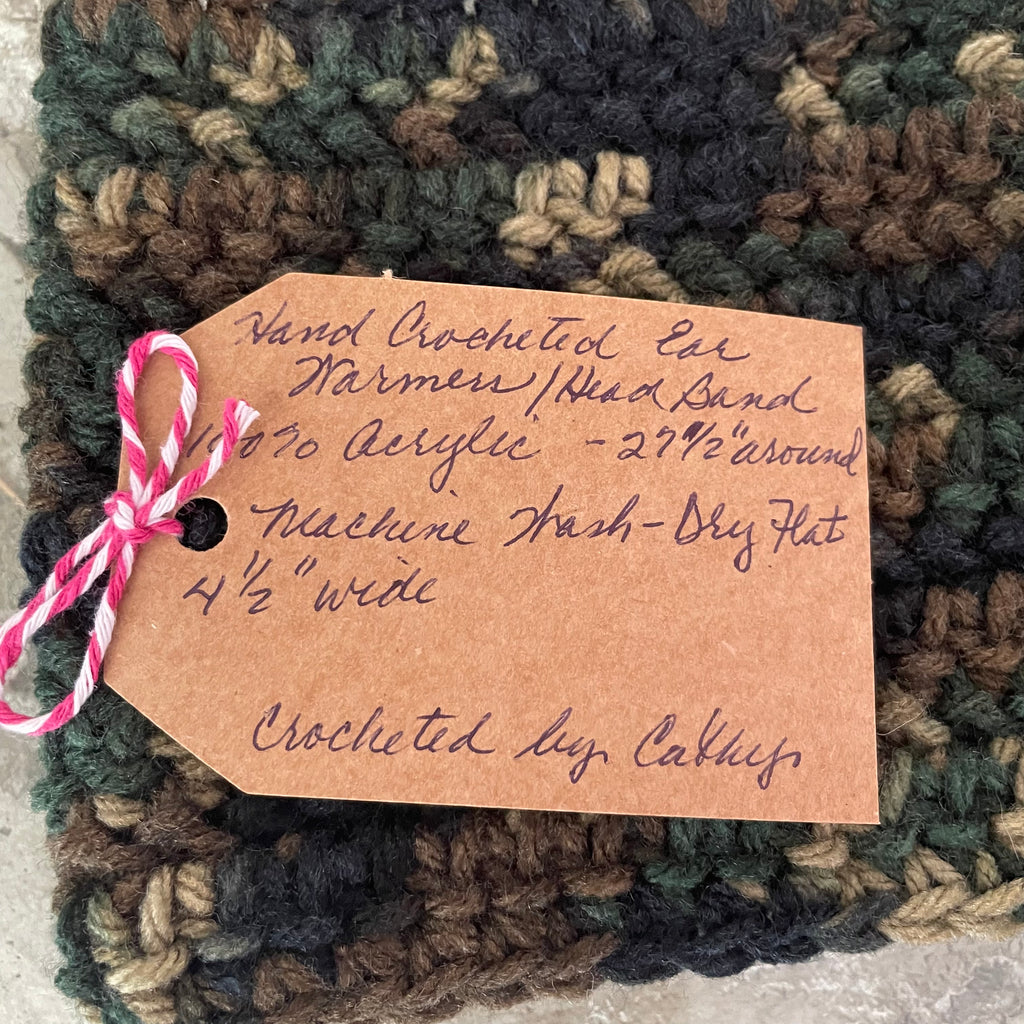 Hand Crocheted Ear
Warmers/Head Band
100% Acrylic - 27 1/2" around
Machine Wash - Dry Flat
4 1/2" wide
Crocheted by Cathy